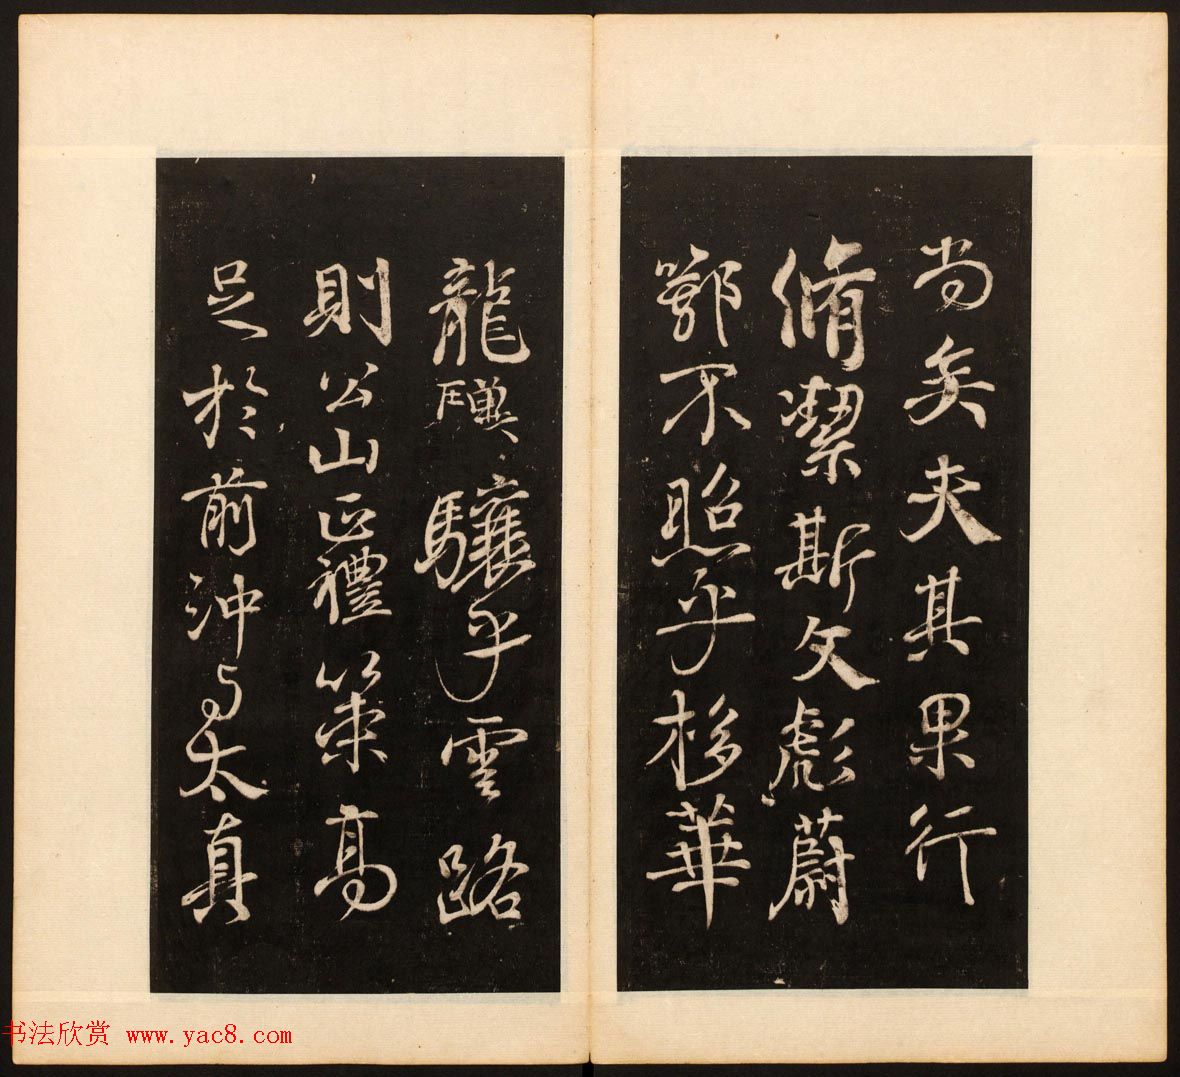 尚矣夫其果行
脩潔斯文彪蔚
鄂不照乎移華
龍驥驤乎雲路
則公山正禮策高
足於前沖与太真
书法欣赏 www.yac8.com